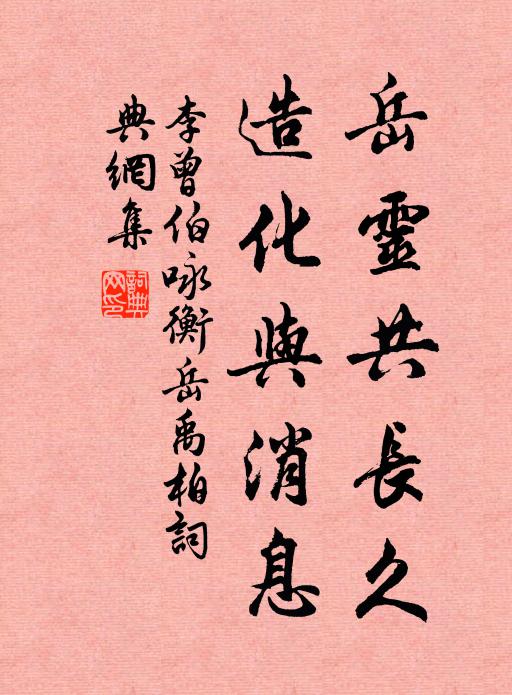 岳靈共長久
造化與消息
李曾伯咏衡岳禹柏詞
典網集
詞典網印